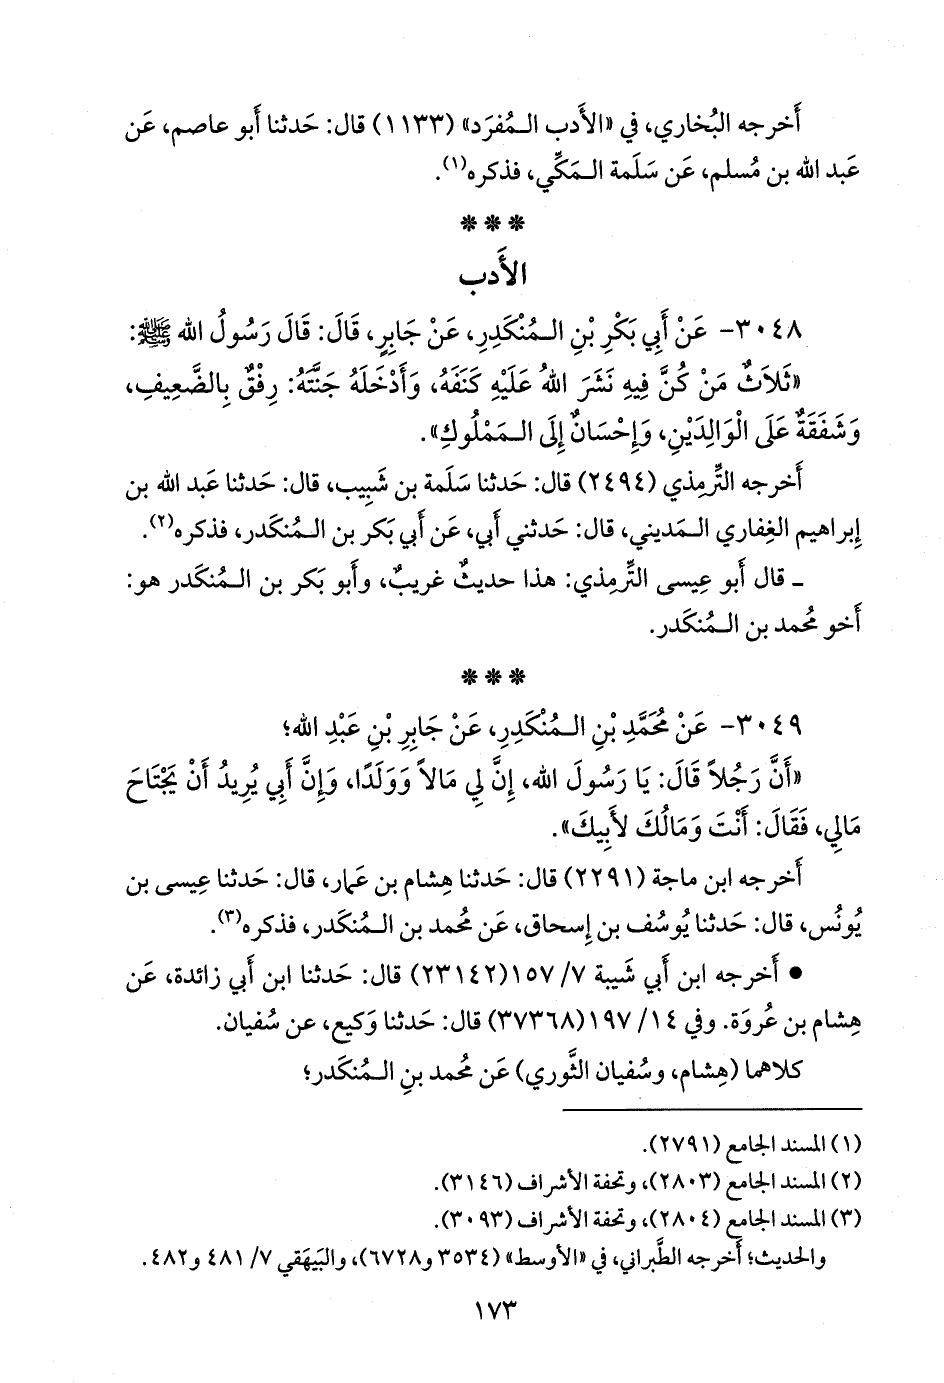 أَخرجه البُخاري، في «الأَدب الـمُفرَد» (١١٣٣) قال: حَدثنا أَبو عاصم، عَن
عَبد الله بن مُسلم، عَن سَلَمة الـمَكِّي، فذكره(١).
* * *
الأَدب
٣٠٤٨- عَنْ أَبِي بَكْرِ بْنِ الـمُنْكَدِرِ، عَنْ جَابِرٍ، قَالَ: قَالَ رَسُولُ الله ﷺ:
«ثَلَاثٌ مَنْ كُنَّ فِيهِ نَشَرَ اللهُ عَلَيْهِ كَنَفَهُ، وَأَدْخَلَهُ جَنَّتَهُ: رِفْقٌ بِالضَّعِيفِ،
وَشَفَقَةٌ عَلَى الْوَالِدَيْنِ، وَإِحْسَانٌ إِلَى الـمَمْلُوكِ».
أَخرجه التِّرمِذي (٢٤٩٤) قال: حَدثنا سَلَمة بن شَبِيب، قال: حَدثنا عَبد الله بن
إِبراهيم الغِفاري الـمَديني، قال: حَدثني أَبي، عَن أَبي بَكر بن الـمُنكَدر، فذكره(٢).
ـ قال أَبو عِيسى التِّرمِذي: هذا حديثٌ غريبٌ، وأَبو بَكر بن الـمُنكَدر هو:
أَخو مُحمد بن الـمُنكَدر.
* * *
٣٠٤٩- عَنْ مُحَمَّدِ بْنِ الـمُنْكَدِرِ، عَنْ جَابِرِ بْنِ عَبْدِ الله؛
«أَنَّ رَجُلاً قَالَ: يَا رَسُولَ الله، إِنَّ لِي مَالاً وَوَلَدًا، وَإِنَّ أَبِي يُرِيدُ أَنْ يَجْتَاحَ
مَالِي، فَقَالَ: أَنْتَ وَمَالُكَ لأَبِيكَ».
أَخرجه ابن ماجة (٢٢٩١) قال: حَدثنا هِشام بن عَمار، قال: حَدثنا عِيسى بن
يُونُس، قال: حَدثنا يُوسُف بن إِسحاق، عَن مُحمد بن الـمُنكَدر، فذكره(٣).
• أَخرجه ابن أَبي شَيبة ٧/ ١٥٧(٢٣١٤٢) قال: حَدثنا ابن أَبي زائدة، عَن
هِشام بن عُروَة. وفي ١٤/ ١٩٧(٣٧٣٦٨) قال: حَدثنا وَكيع، عن سُفيان.
كلاهما (هِشام، وسُفيان الثَّوري) عَن مُحمد بنِ الـمُنكَدر؛
(١) المسند الجامع (٢٧٩١).
(٢) المسند الجامع (٢٨٠٣)، وتحفة الأشراف (٣١٤٦).
(٣) المسند الجامع (٢٨٠٤)، وتحفة الأشراف (٣٠٩٣).
والحديث؛ أَخرجه الطَّبراني، في «الأوسط» (٣٥٣٤ و٦٧٢٨)، والبَيهَقي ٧/ ٤٨١ و٤٨٢.
١٧٣